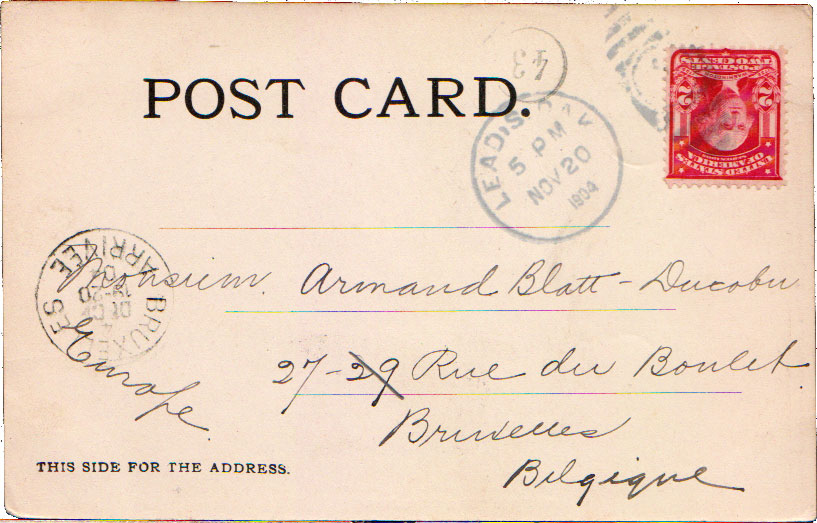 43
POST CARD.
LEAD, S. DAK
5 PM
NOV 20
1904
POSTAGE
TWO CENTS
2 2
UNITED STATES
OF AMERICA
BRUXELLES
ARRIVEE
19-20
04
Monsieur. Armand Blatt-Ducobu
27-29 Rue du Boulet
Bruxelles
Belgique
Europe.
THIS SIDE FOR THE ADDRESS.